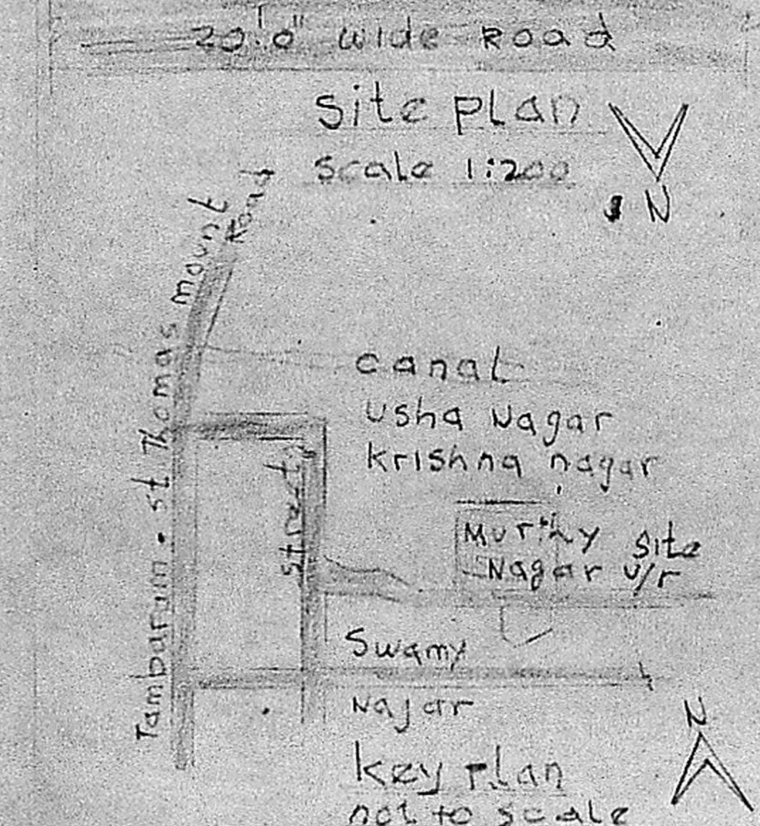 20'0" wide Road
site plan
scale 1:200
N
Tambaram. st Thomas mount Road
canal
usha Nagar
krishna nagar
street
Murthy site
Nagar u/r
Swamy
Nagar
N
key plan
not to scale